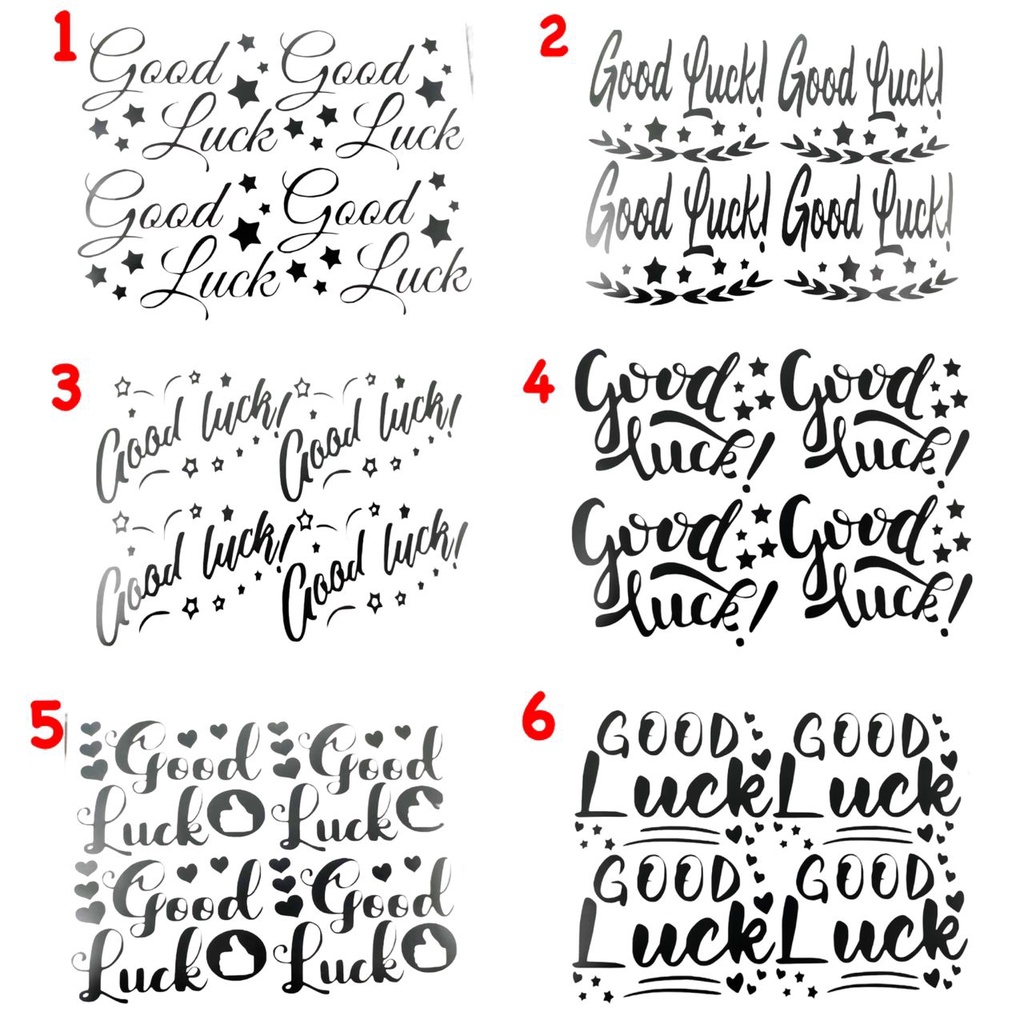 1
Good Good
Luck Luck
Good Good
Luck Luck
2
Good Luck! Good Luck!
Good Luck! Good Luck!
3
Good luck! Good luck!
Good luck! Good luck!
4
Good Good
luck! luck!
Good Good
luck! luck!
5
Good Good
Luck Luck
Good Good
Luck Luck
6
GOOD GOOD
Luck Luck
GOOD GOOD
Luck Luck